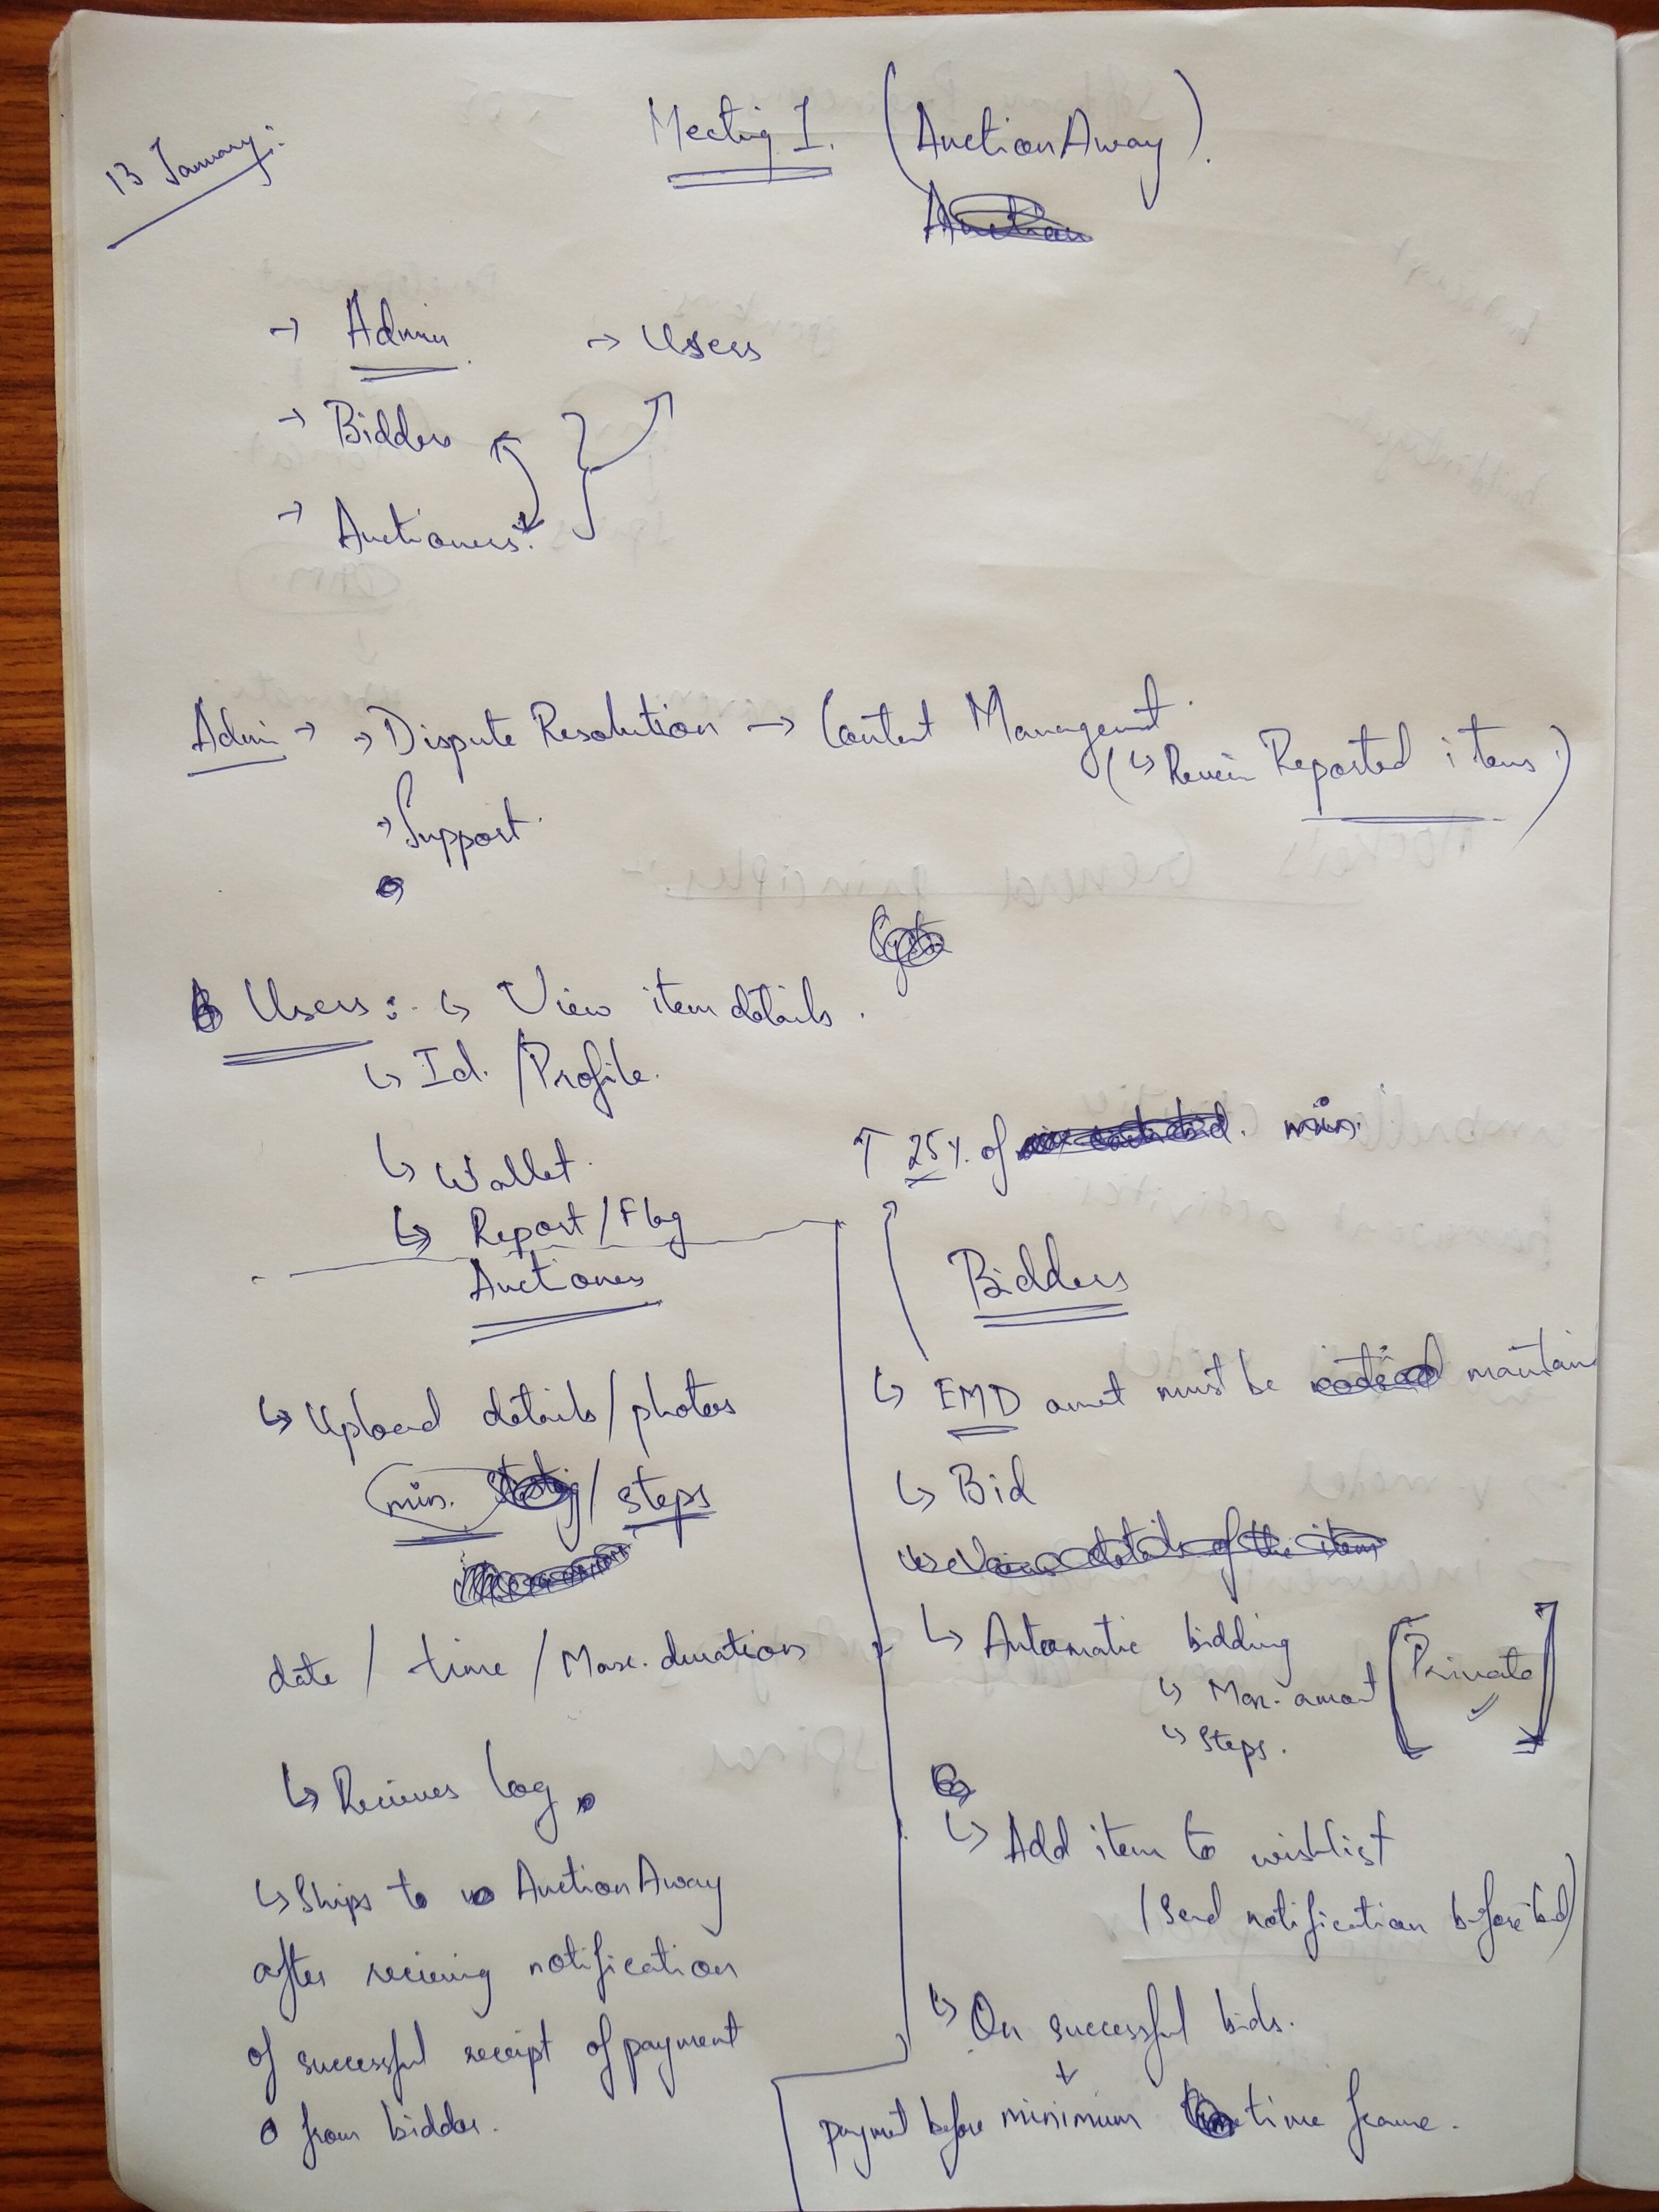 13 January:
Meeting I. (AuctionAway).
→ Admin → Users
→ Bidders
→ Auctioners.
Admin → → Dispute Resolution → Content Management.
(↳ Review Reported items)
→ Support.
Users: ↳ View item details.
↳ Id. / Profile.
↳ Wallet.
↳ Report / Flag
Auctioners
↳ Upload details / photos
min. / steps
date / time / Max. duration
↳ Recieves log.
↳ Ships to AuctionAway
after recieving notification
of successful receipt of payment
from bidder.
↑ 25% of min.
Bidders
↳ EMD amnt must be maintain
↳ Bid
↳ Automatic bidding
↳ Max. amont [Private]
↳ steps.
↳ Add item to wishlist
(Send notification before bid)
↳ On successful bids.
↓
payment before minimum time frame.